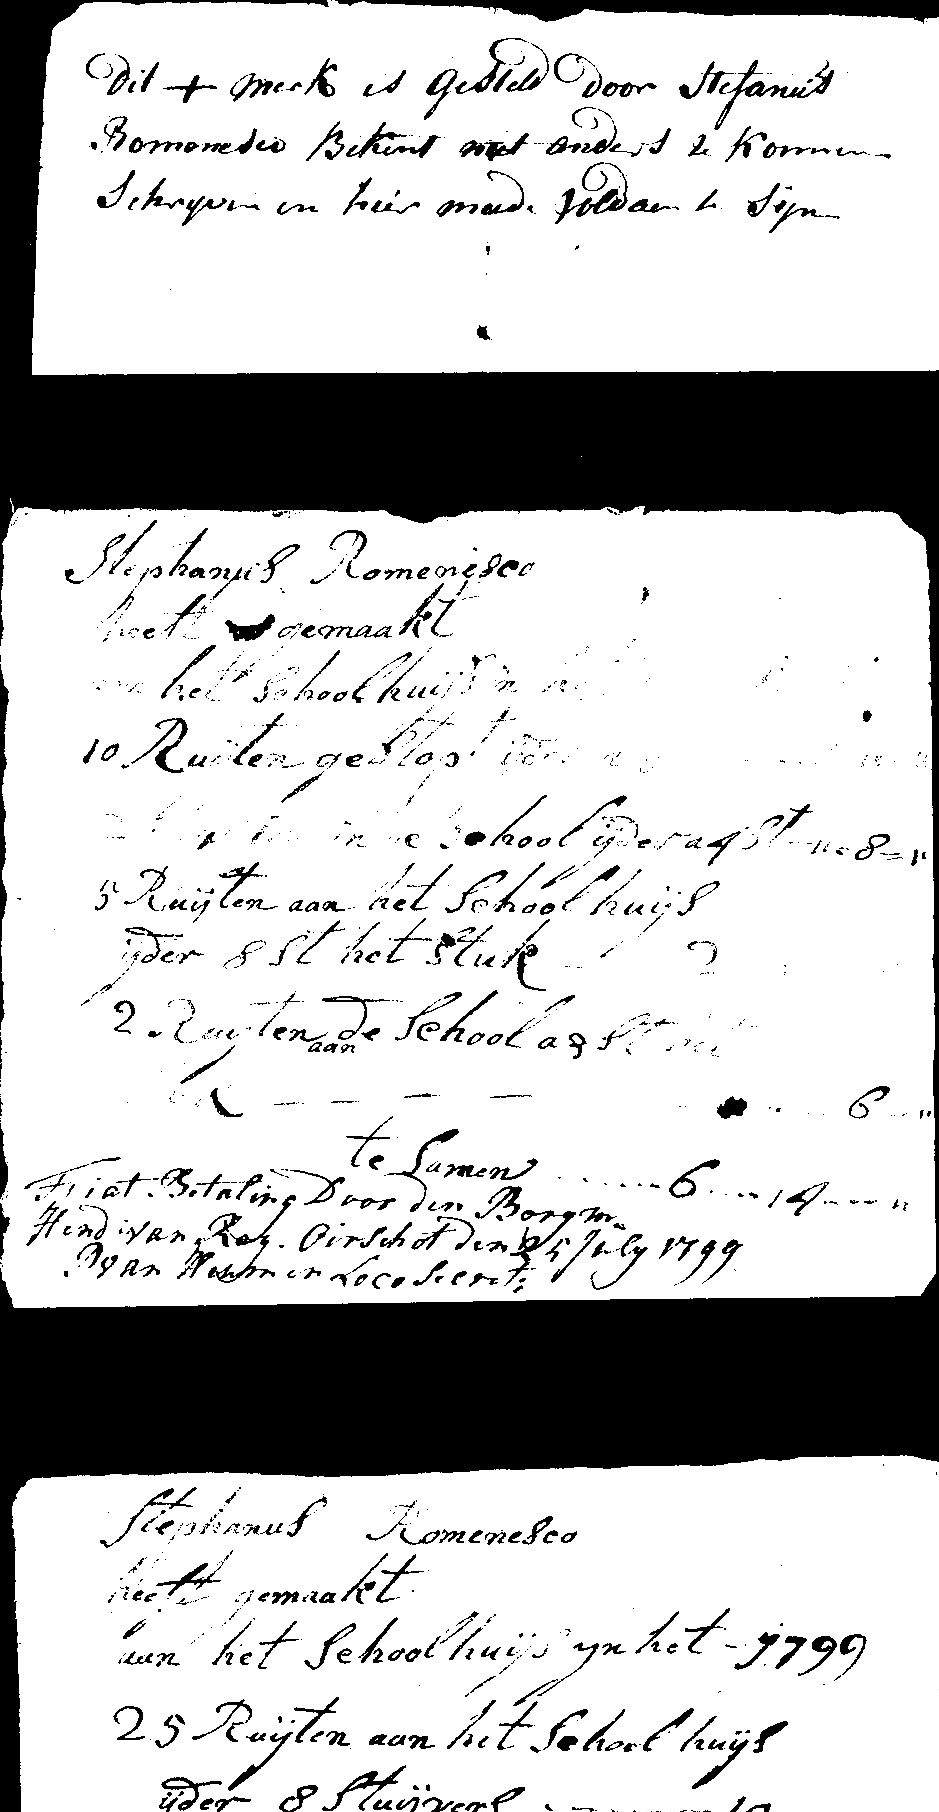 Dit + merk is Gesteld Door Stefanus
Romonesco Bekent niet anders te Konnen
Schryven en hier mede Voldaen te Sijn
Stephanus Romenesco
heeft gemaakt
aan het Schoolhuijs in het
10 Ruijten gestopt ijder
in de School ijder a 4 St - 8 -
5 Ruijten aan het Schoolhuijs
ijder 8 St het Stuk - 2
2 Ruijten aan de School a 3 St het
- - - - 6 - "
te Samen - 6 - 14 - "
Fiat Betaling Door den Borgmr
Hend van Roy. Oirschot den 25 July 1799
in Loco Secrets
Stephanus Romenesco
heeft gemaakt
aan het Schoolhuijs yn het - 1799
25 Ruijten aan het School huijs
ijder 8 Stuijvers - 10